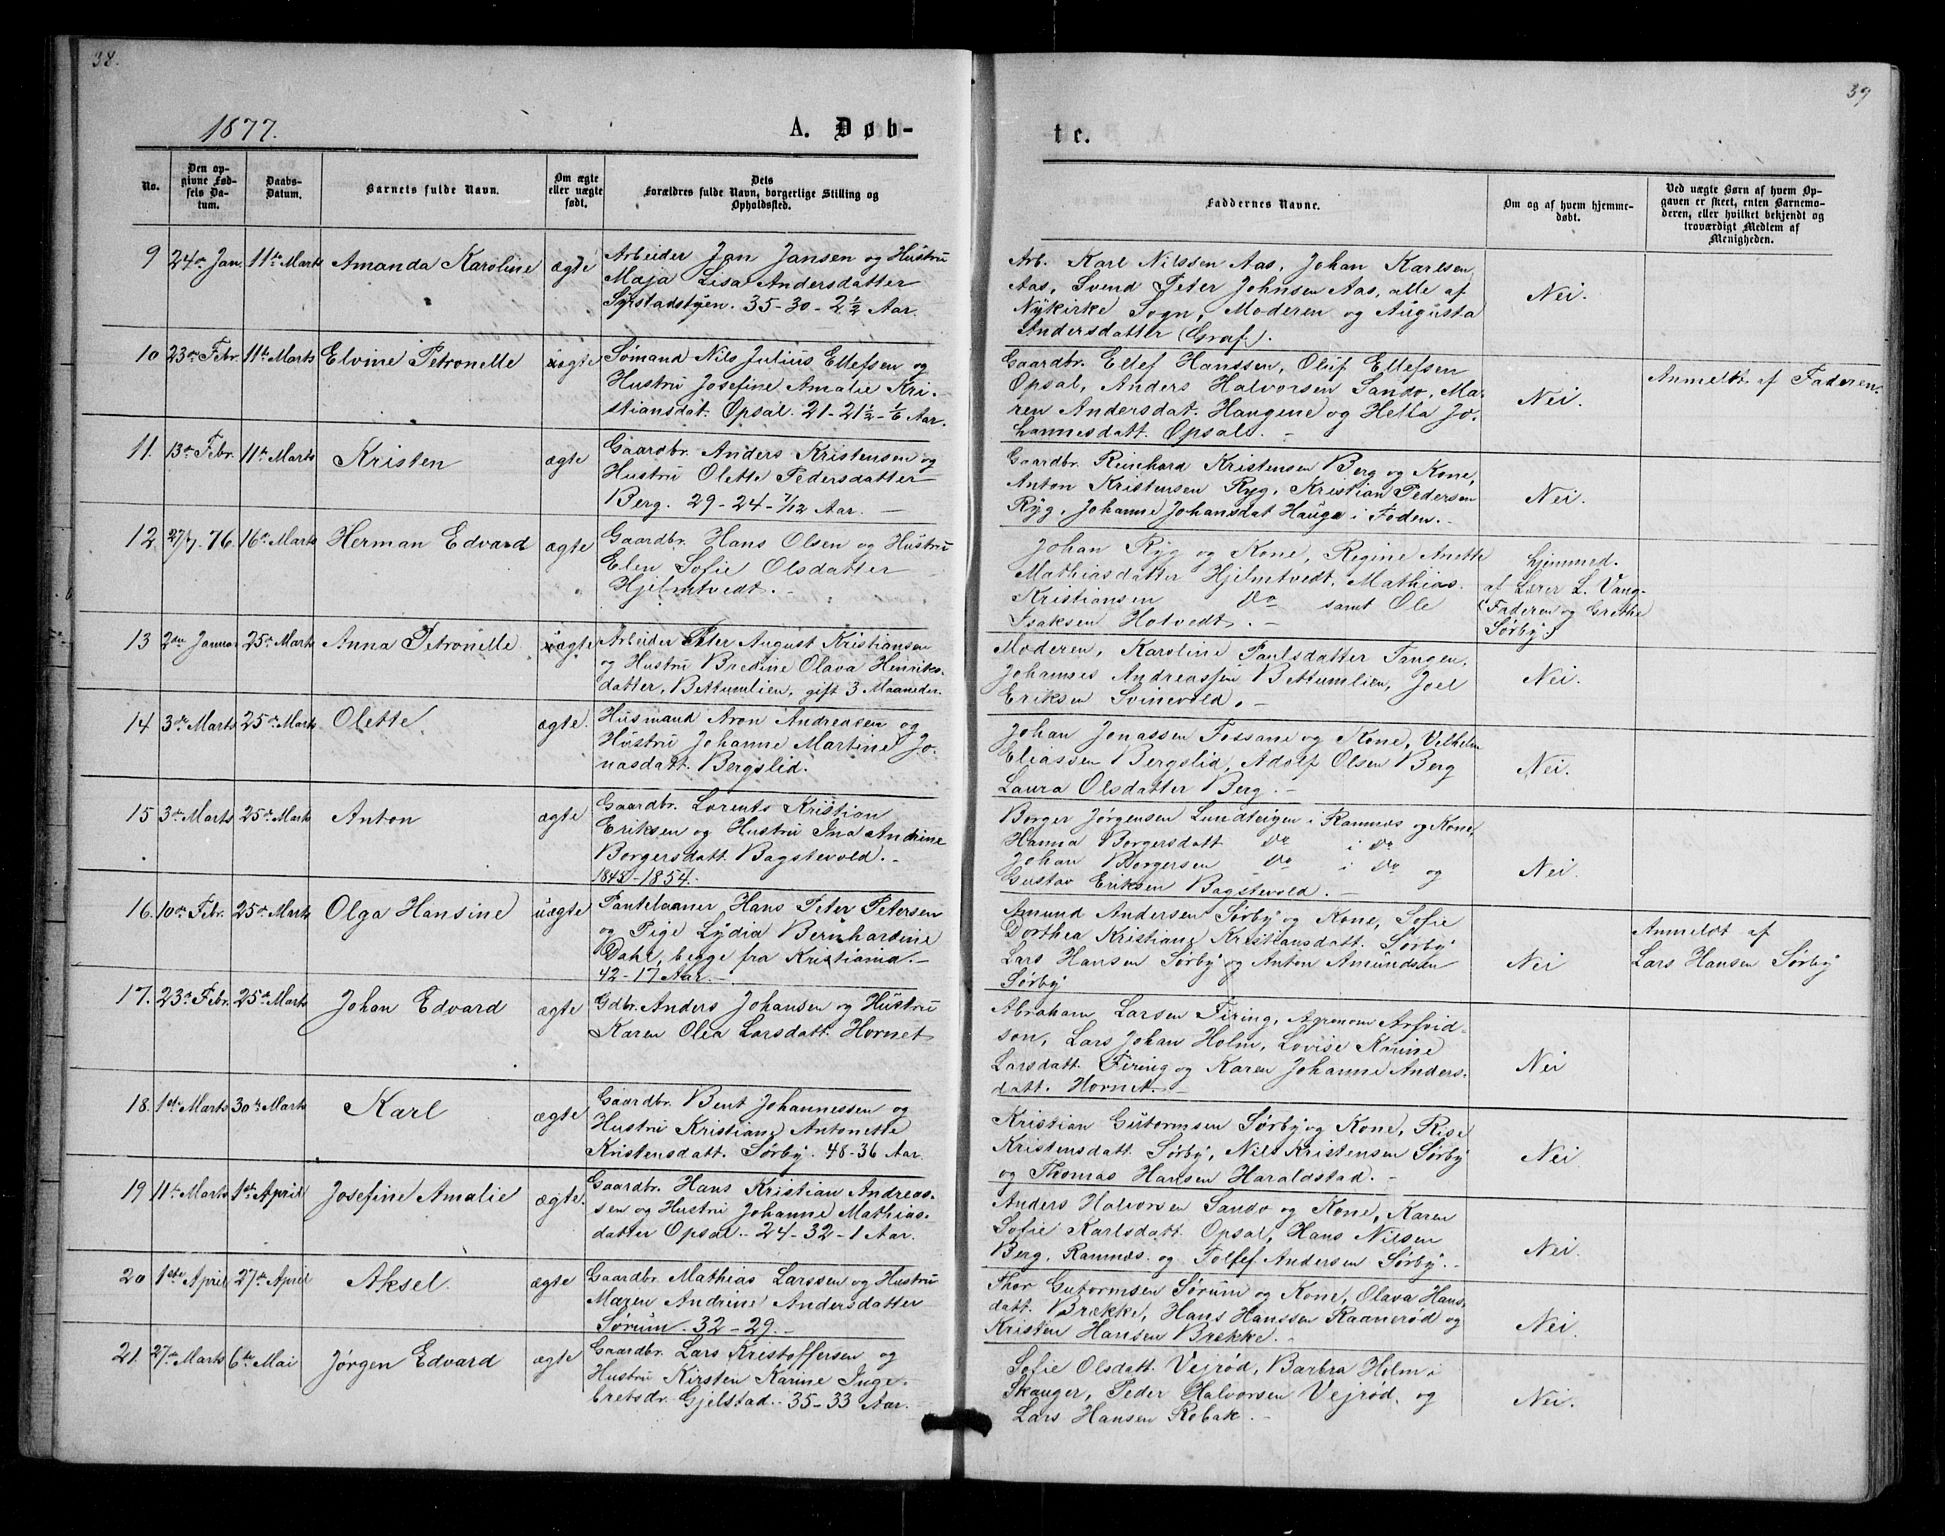 38.
39
1877.
A. Døb-
te.
No.
Den op-
givne Fød-
sels Da-
tum.
Daabs-
Datum.
Barnets fulde Navn.
Om ægte
eller uægte
født.
Dets
Forældres fulde Navn, borgerlige Stilling og
Opholdssted.
Faddernes Navne.
Om og af hvem hjemme-
døbt.
Ved uægte Børn af hvem Op-
gaven er skeet, enten Barnemo-
deren, eller hvilket bekjendt og
troværdigt Medlem af
Menigheden.
9 24de Jan. 11te Marts Amanda Karoline ægte
Arbeider Jan Jansen og Hustru
Maja Lisa Andersdatter
35-30-2½ Aar.
Arb. Karl Nilssen Aas, Johan Karlsen
Aas, Svend Peter Johnsen Aas, alle af
Nykirke Sogn, Moderen og Augusta
Andersdatter (Graf.)
Nei.
10 23de Febr. 11te Marts Elvine Petronelle uægte
Sømand Nils Julius Ellefsen og
Hustru Josefine Amalie Kri-
stiansdat. Opsal. 21-21½-⅙ Aar.
Gaardbr. Ellef Hanssen, Oluf Ellefsen
Opsal, Anders Halvorsen Sando, Ma-
ren Andersdat. Haugene og Hella Jo-
hannesdatt. Opsal. -
Nei.
Anmeldt af Faderen.
11. 13de Febr. 11te Marts Kristen ægte
Gaardbr. Anders Kristensen og
Hustru Olette Pedersdatter
Berg. 29-24-7/12 Aar. -
Gaardbr. Reinhard Kristensen Berg og Kone,
Anton Kristensen Ryg, Kristian Pedersen
Ryg, Johanne Johansdat Hauge i Foden. -
Nei.
12. 27/7. 76. 16de Marts Herman Edvard ægte
Gaardbr. Hans Olsen og Hustru
Elen Sofie Olsdatter
Hjelmtvedt. -
Johan Ryg og Kone, Regine Anette
Mathiasdatter Hjelmtvedt, Mathias
Kristiansen do samt Ole
Isaksen Hotvedt. -
hjemmed.
af Lærer L. Vang
(Faderen og Grethe
Sørby)
13 2den Januar 25de Marts Anna Petronelle uægte
Arbeider Peter August Kristiansen
og Hustru Bredine Olava Henriks-
datter, Bettumlien, gift 3 Maaneder.
Moderen, Karoline Paulsdatter Tangen,
Johannes Andreassen Bettumlien, Joel
Eriksen Svinevold. -
Nei.
14 3de Marts 25de Marts Olette ægte.
Husmand Aron Andreasen og
Hustru Johanne Martine Jo-
nasdatt. Bergslid.
Johan Jonassen Fossane og Kone, Velhelm
Eliassen Bergslid, Adolf Olsen Berg
Laura Olsdatter Berg. -
Nei.
15 3de Marts 25de Marts Anton ægte
Gaardbr. Lorents Kristian
Eriksen og Hustru Ina Andrine
Borgersdatt. Bagstevold. -
1845-1854.
Borger Jørgensen Lundteigen i Ramnæs og Kone,
Hanna Borgersdatt do i do
Johan Borgersen do i do og
Gustav Eriksen Bagstevold. -
Nei.
16. 10de Febr. 25de Marts Olga Hansine uægte
Pantelaaner Hans Peter Petersen
og Pige Lydia Bernhardine
Dahl, begge fra Kristiania. -
42-17 Aar. -
Amund Andersen Sørby og Kone, Sofie
Dorthea Kristiane Kristiansdatt. Sørby
Lars Hansen Sørby og Anton Amundsen
Sørby
Nei
Anmeldt af
Lars Hansen Sørby
17. 23de Febr. 25de Marts Johan Edvard ægte
Gdbr. Anders Johansen og Hustru
Karen Olea Larsdatt. Hornet
Abraham Larsen Firing, Agronom Arfvid-
son, Lars Johan Holm, Lovise Karine
Larsdatt. Firing og Karen Johanne Anders-
datt. Hornet. -
Nei
18. 1ste Marts 30te Marts Karl ægte
Gaardbr. Bent Johannessen og
Hustru Kristiane Antonette
Kristensdatt. Sørby. 48-36 Aar.
Kristian Gutormsen Sørby og Kone, Rise
Kristensdatt. Sørby, Nils Kristensen Sørby
og Thomas Hansen Haraldstad. -
Nei
19 11te Marts 1ste April Josefine Amalie ægte.
Gaardbr. Hans Kristian Andreas-
sen og Hustru Johanne Mathias-
datter Opsal. - 24-32-1 Aar.
Anders Halvorsen Sando og Kone, Karen
Sofie Karlsdatt. Opsal, Hans Nilsen
Berg, Ramnæs. og Tollef Andersen Sørby. -
Nei.
20 1ste April 27de April Aksel. ægte
Gaardbr. Mathias Larssen og Hustru
Maren Andrine Andersdatter
Sørum. 32-29. -
Thor Gutormsen Sørum og Kone, Olava Hans-
datt. Brække, Hans Hanssen Raanerød og
Kristen Hansen Brekke. -
Nei.
21. 27de Marts 6te Mai Jørgen Edvard ægte
Gaardbr. Lars Kristoffersen og
Hustru Kirsten Karine Inge-
bretsdr. Gjelstad. - 35-33 Aar. -
Sofie Olsdatt. Vejrød, Barbra Holm i
Skauger, Peder Halvorsen Vejrød. og
Lars Hansen Robak. -
Nei.